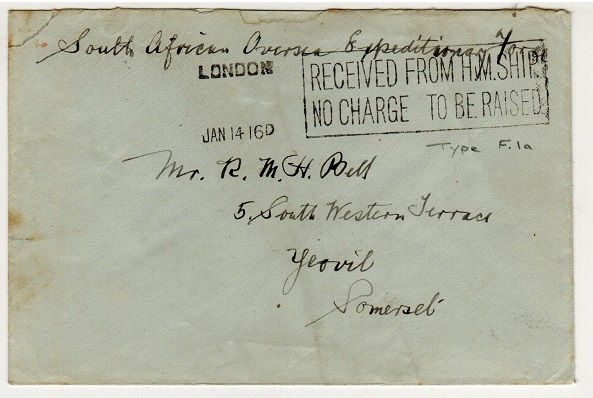 South African Oversea Expeditionary Force
LONDON
RECEIVED FROM H.M. SHIP.
NO CHARGE TO BE RAISED
JAN 14 16 D
Type F.1a
Mr. R. M. H. Bell
5, South Western Terrace
Yeovil
Somerset